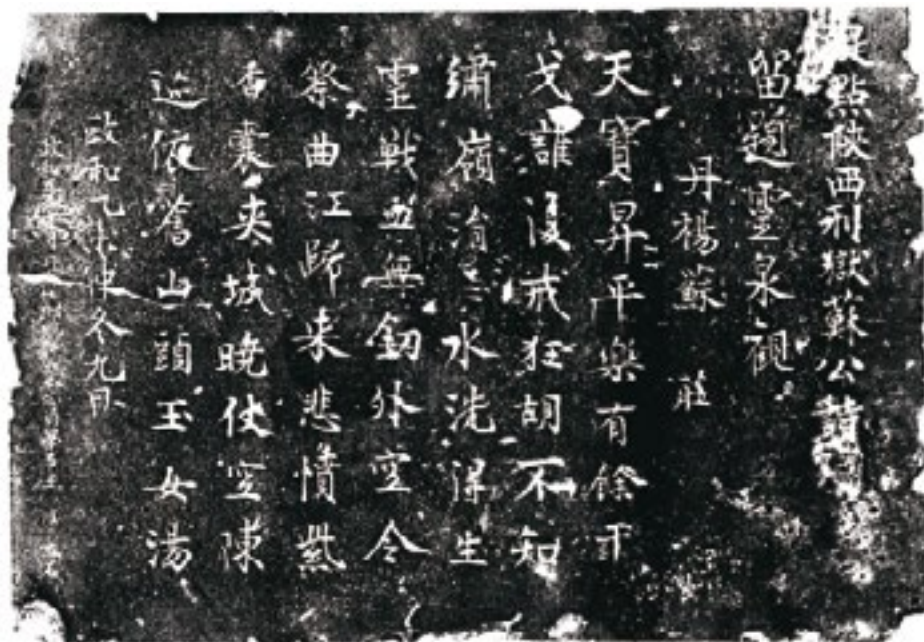 提點陝西刑獄蘇公
留題靈泉觀
丹楊蘇 莊
天寶昇平樂有餘干
戈誰復戒狂胡不知
繡嶺湝三水洗得生
靈戰血無釰外空令
祭曲江歸来悲憤紫
香囊夹城晚使空陳
迹依舊山頭玉女湯
政和 仲冬九日